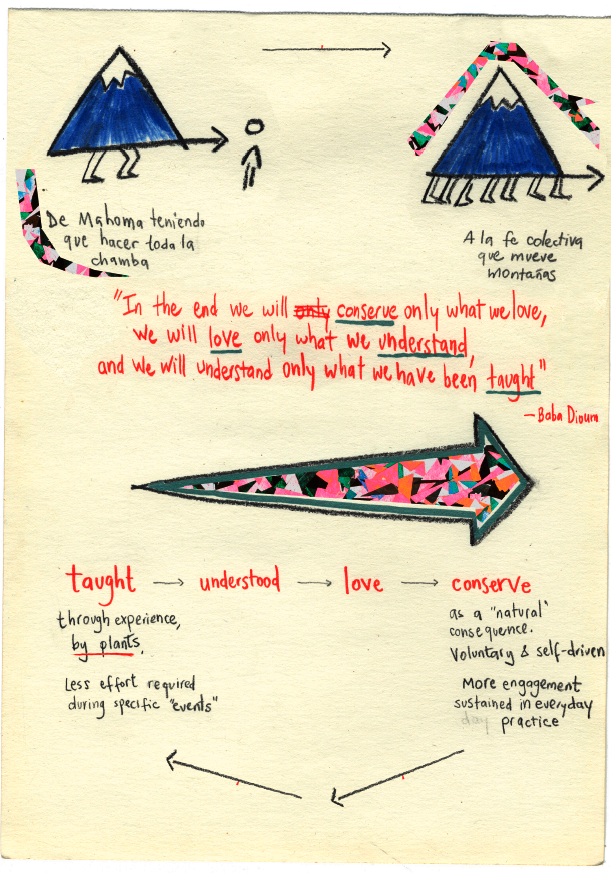 De Mahoma teniendo
que hacer toda la
chamba
A la fe colectiva
que mueve
montañas
"In the end we will only conserve only what we love,
we will love only what we understand,
and we will understand only what we have been taught"
—Baba Dioum
taught → understood → love → conserve
through experience,
by plants.
Less effort required
during specific "events"
as a "natural"
consequence.
Voluntary & self-driven
More engagement
sustained in everyday
day practice